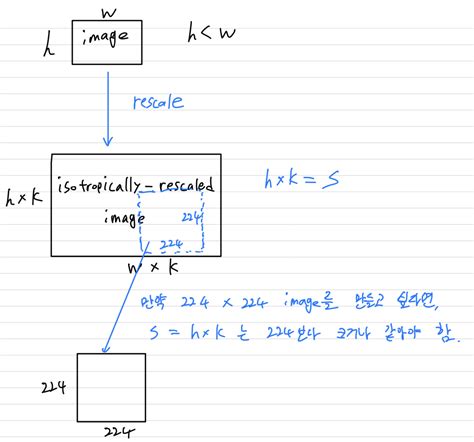 w
h
image
h < w
rescale
isotropically-rescaled
image
h × k
h × k = S
224
224
w × k
만약 224 × 224 image를 만들고 싶다면,
S = h × k 는 224보다 크거나 같아야 함.
224
224